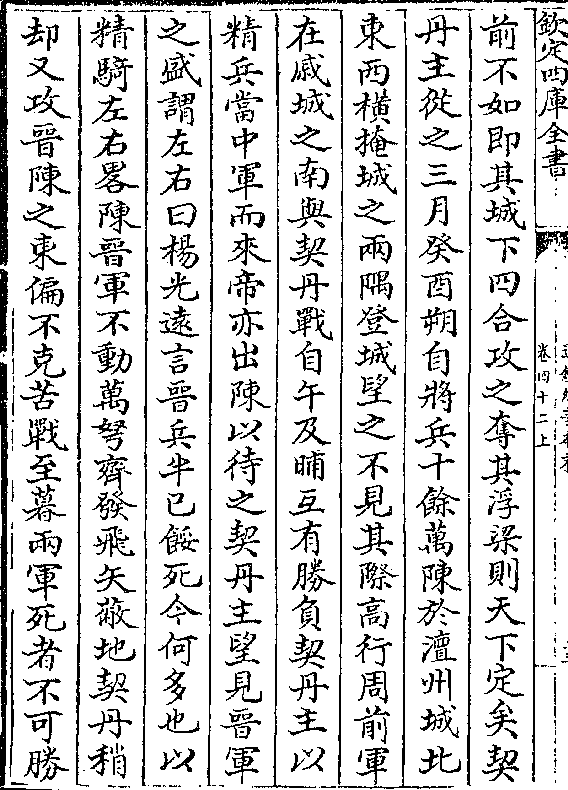 欽定四庫全書
卷四十二上
前不如即其城下四合攻之奪其浮梁則天下定矣契
丹主從之三月癸酉朔自將兵十餘萬陳於澶州城北
東西橫掩城之兩隅登城望之不見其際高行周前軍
在戚城之南與契丹戰自午及晡互有勝負契丹主以
精兵當中軍而來帝亦出陳以待之契丹主望見晉軍
之盛謂左右曰楊光遠言晉兵半已餒死今何多也以
精騎左右畧陳晉軍不動萬弩齊發飛矢蔽地契丹稍
却又攻晉陳之東偏不克苦戰至暮兩軍死者不可勝